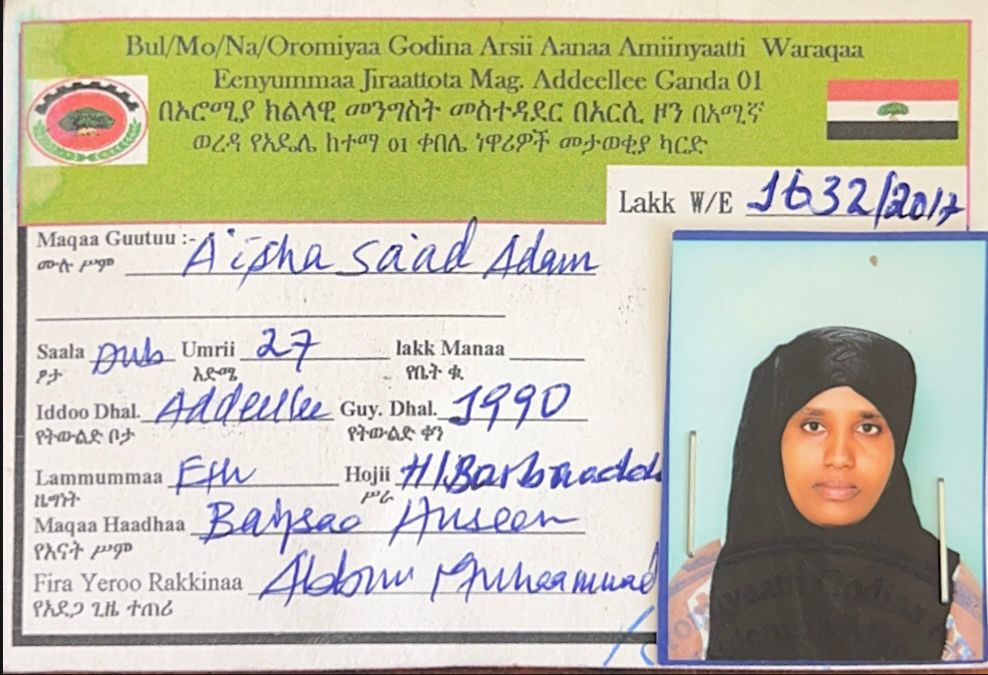 Bul/Mo/Na/Oromiyaa Godina Arsii Aanaa Amiinyaatti Waraqaa
Eenyummaa Jiraattota Mag. Addeellee Ganda 01
በኦሮሚያ ክልላዊ መንግስት መስተዳደር በአርሲ ዞን በአሚኛ
ወረዳ የአዴሌ ከተማ 01 ቀበሌ ነዋሪዎች መታወቂያ ካርድ
Lakk W/E 1632/2017
Maqaa Guutuu :- A'isha Sa'ad Adam
ሙሉ ሥም
Saala Dub Umrii 27 lakk Manaa
ፆታ እድሜ የቤት ቁ
Iddoo Dhal. Addeellee Guy. Dhal. 1990
የትውልድ ቦታ የትውልድ ቀን
Lammummaa Eth Hojii
ዜግነት ሥራ
Maqaa Haadhaa Huseen
የእናት ሥም
Fira Yeroo Rakkinaa
የአደጋ ጊዜ ተጠሪ
Godina